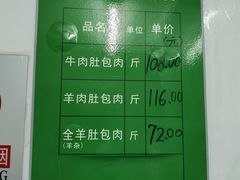 品名 单位 单价
(元)
牛肉肚包肉 斤 108.00
羊肉肚包肉 斤 116.00
全羊肚包肉 斤 72.00
(羊杂)
烟
G